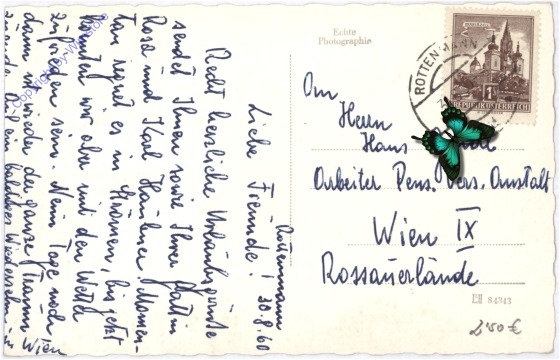 Rottenmann
30.8.60
Liebe Freunde!
Recht herzliche Urlaubsgrüße
sendet Ihnen sowie Ihrer Gattin
Rosa und Karl. Momen-
tan regnet es in Strömen, bis jetzt
konnten wir aber mit dem Wetter
zufrieden sein. Neun Tage noch
dann wieder der ganze
Auf ein baldiges Wiedersehen in
Wien
Echte
Photographie
REPUBLIK ÖSTERREICH
ROTTENMANN
An
Herrn
Hans
Arbeiter Pens. Vers. Anstalt
Wien IX
Rossauerlände
84343
2'50 €